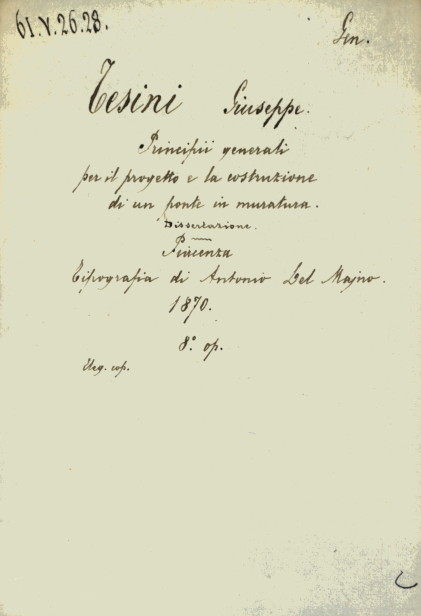 61.V.26.28.
Gen.
Tesini Giuseppe.
Principii generali
per il progetto e la costruzione
di un ponte in muratura.
Dissertazione.
Piacenza
Tipografia di Antonio Del Majno.
1870.
8.° op.
cop.